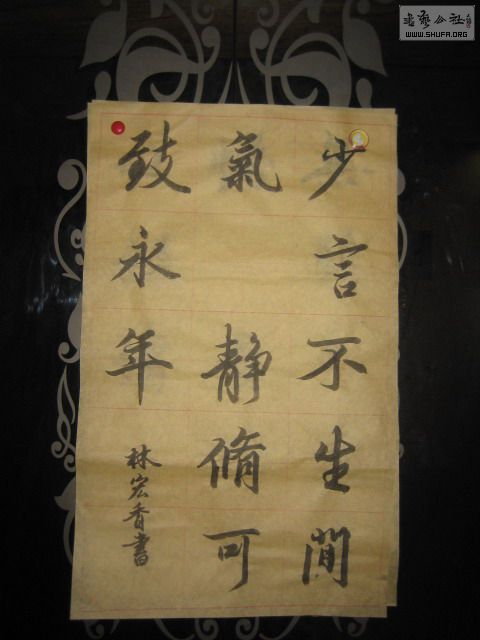 少言不生閒
氣 静脩可
致永年
林宏香書
書藝公社
WWW.SHUFA.ORG